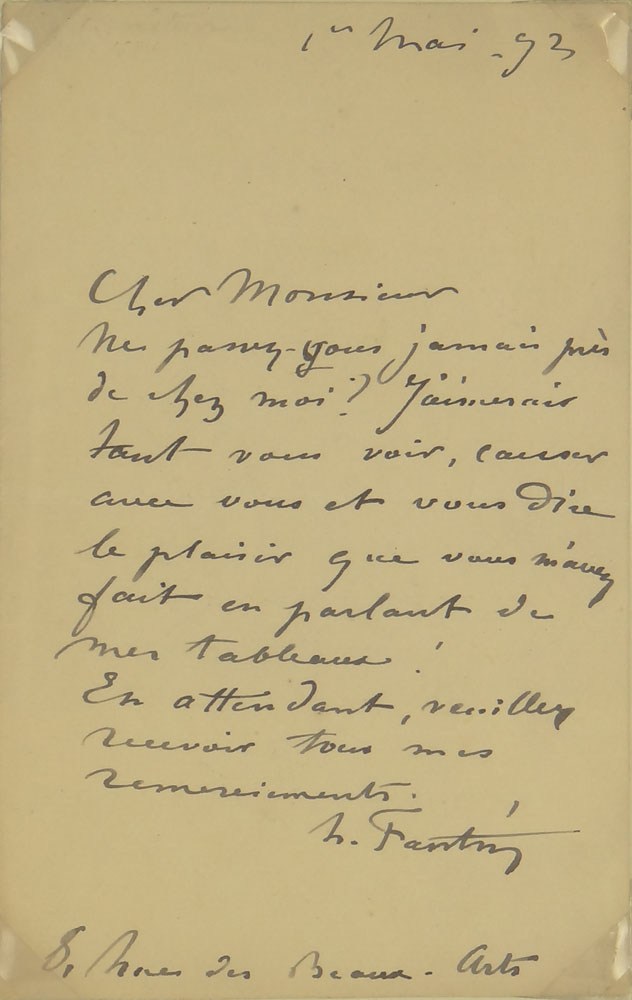 1er Mai - 93
Cher Monsieur
Ne passez-vous jamais près
de chez moi ? J'aimerais
tant vous voir, causer
avec vous et vous dire
le plaisir que vous m'avez
fait en parlant de
mes tableaux !
En attendant, veuillez
recevoir tous mes
remerciements.
h. Fantin
8, Rue des Beaux-Arts